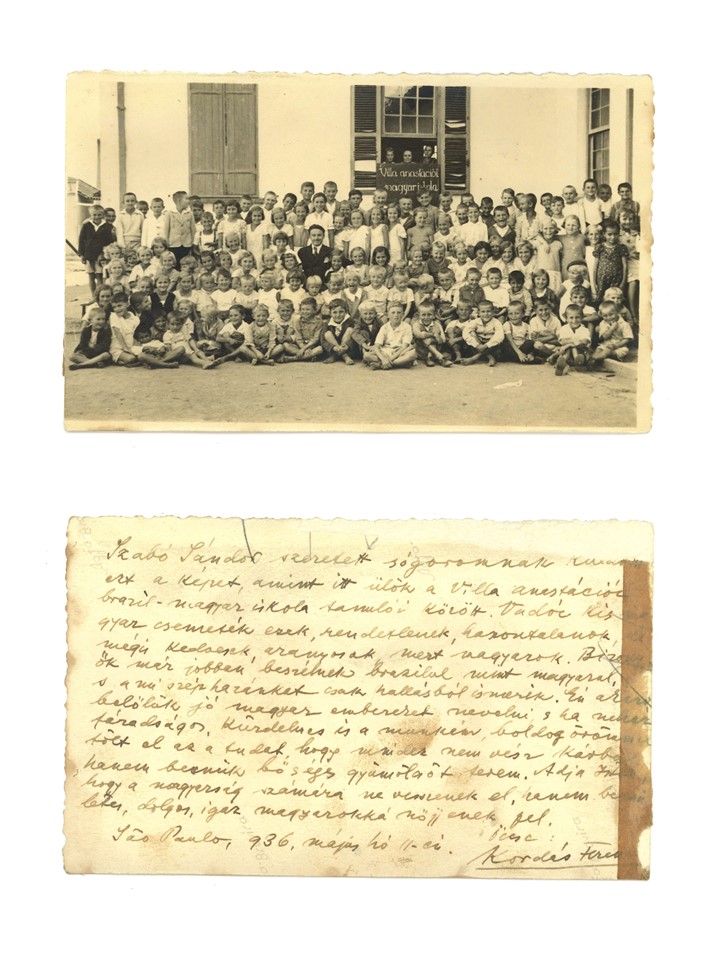 Villa anastácioi
magyar iskola
Szabó Sándor szeretett sógoromnak
ezt a képet, amint itt ülök a Villa anastációi
brazil-magyar iskola tanulói között. Vadóc kis
gyar csemeték ezek, rendetlenek, haszontalanok,
mégis kedvesek, aranyosak, mert magyarok.
ők már jobban beszélnek brazilul, mint magyarul,
s a mi szép hazánkat csak hallásból ismerik. Én
belőlük jó magyar embereket nevelni, s ha
fáradságos, küzdelmes is a munkám, boldog
tölt el az a tudat, hogy mindez nem vész
hanem bennük bőséges gyümölcsöt terem. Adja
hogy a magyarság számára ne vesszenek el, hanem
letes, dolgos, igaz magyarokká nőjjenek fel.
São Paulo, 936. május hó 11-én.
Kordás